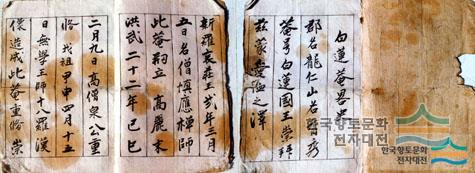 白蓮菴畧
郡名龍仁山名香秀
菴号白蓮國王崇拜
玆蒙愛恤之澤
新羅哀莊王貳年三月
五日名僧愼應禪師
此菴刱立 高麗末
洪武二十二年己巳
二月九日高僧泉公重
修 我祖甲申四月十五
日無學王師十八羅漢
像造成此菴重修崇
한국향토문화
전자대전
한국향토문화
전자대전